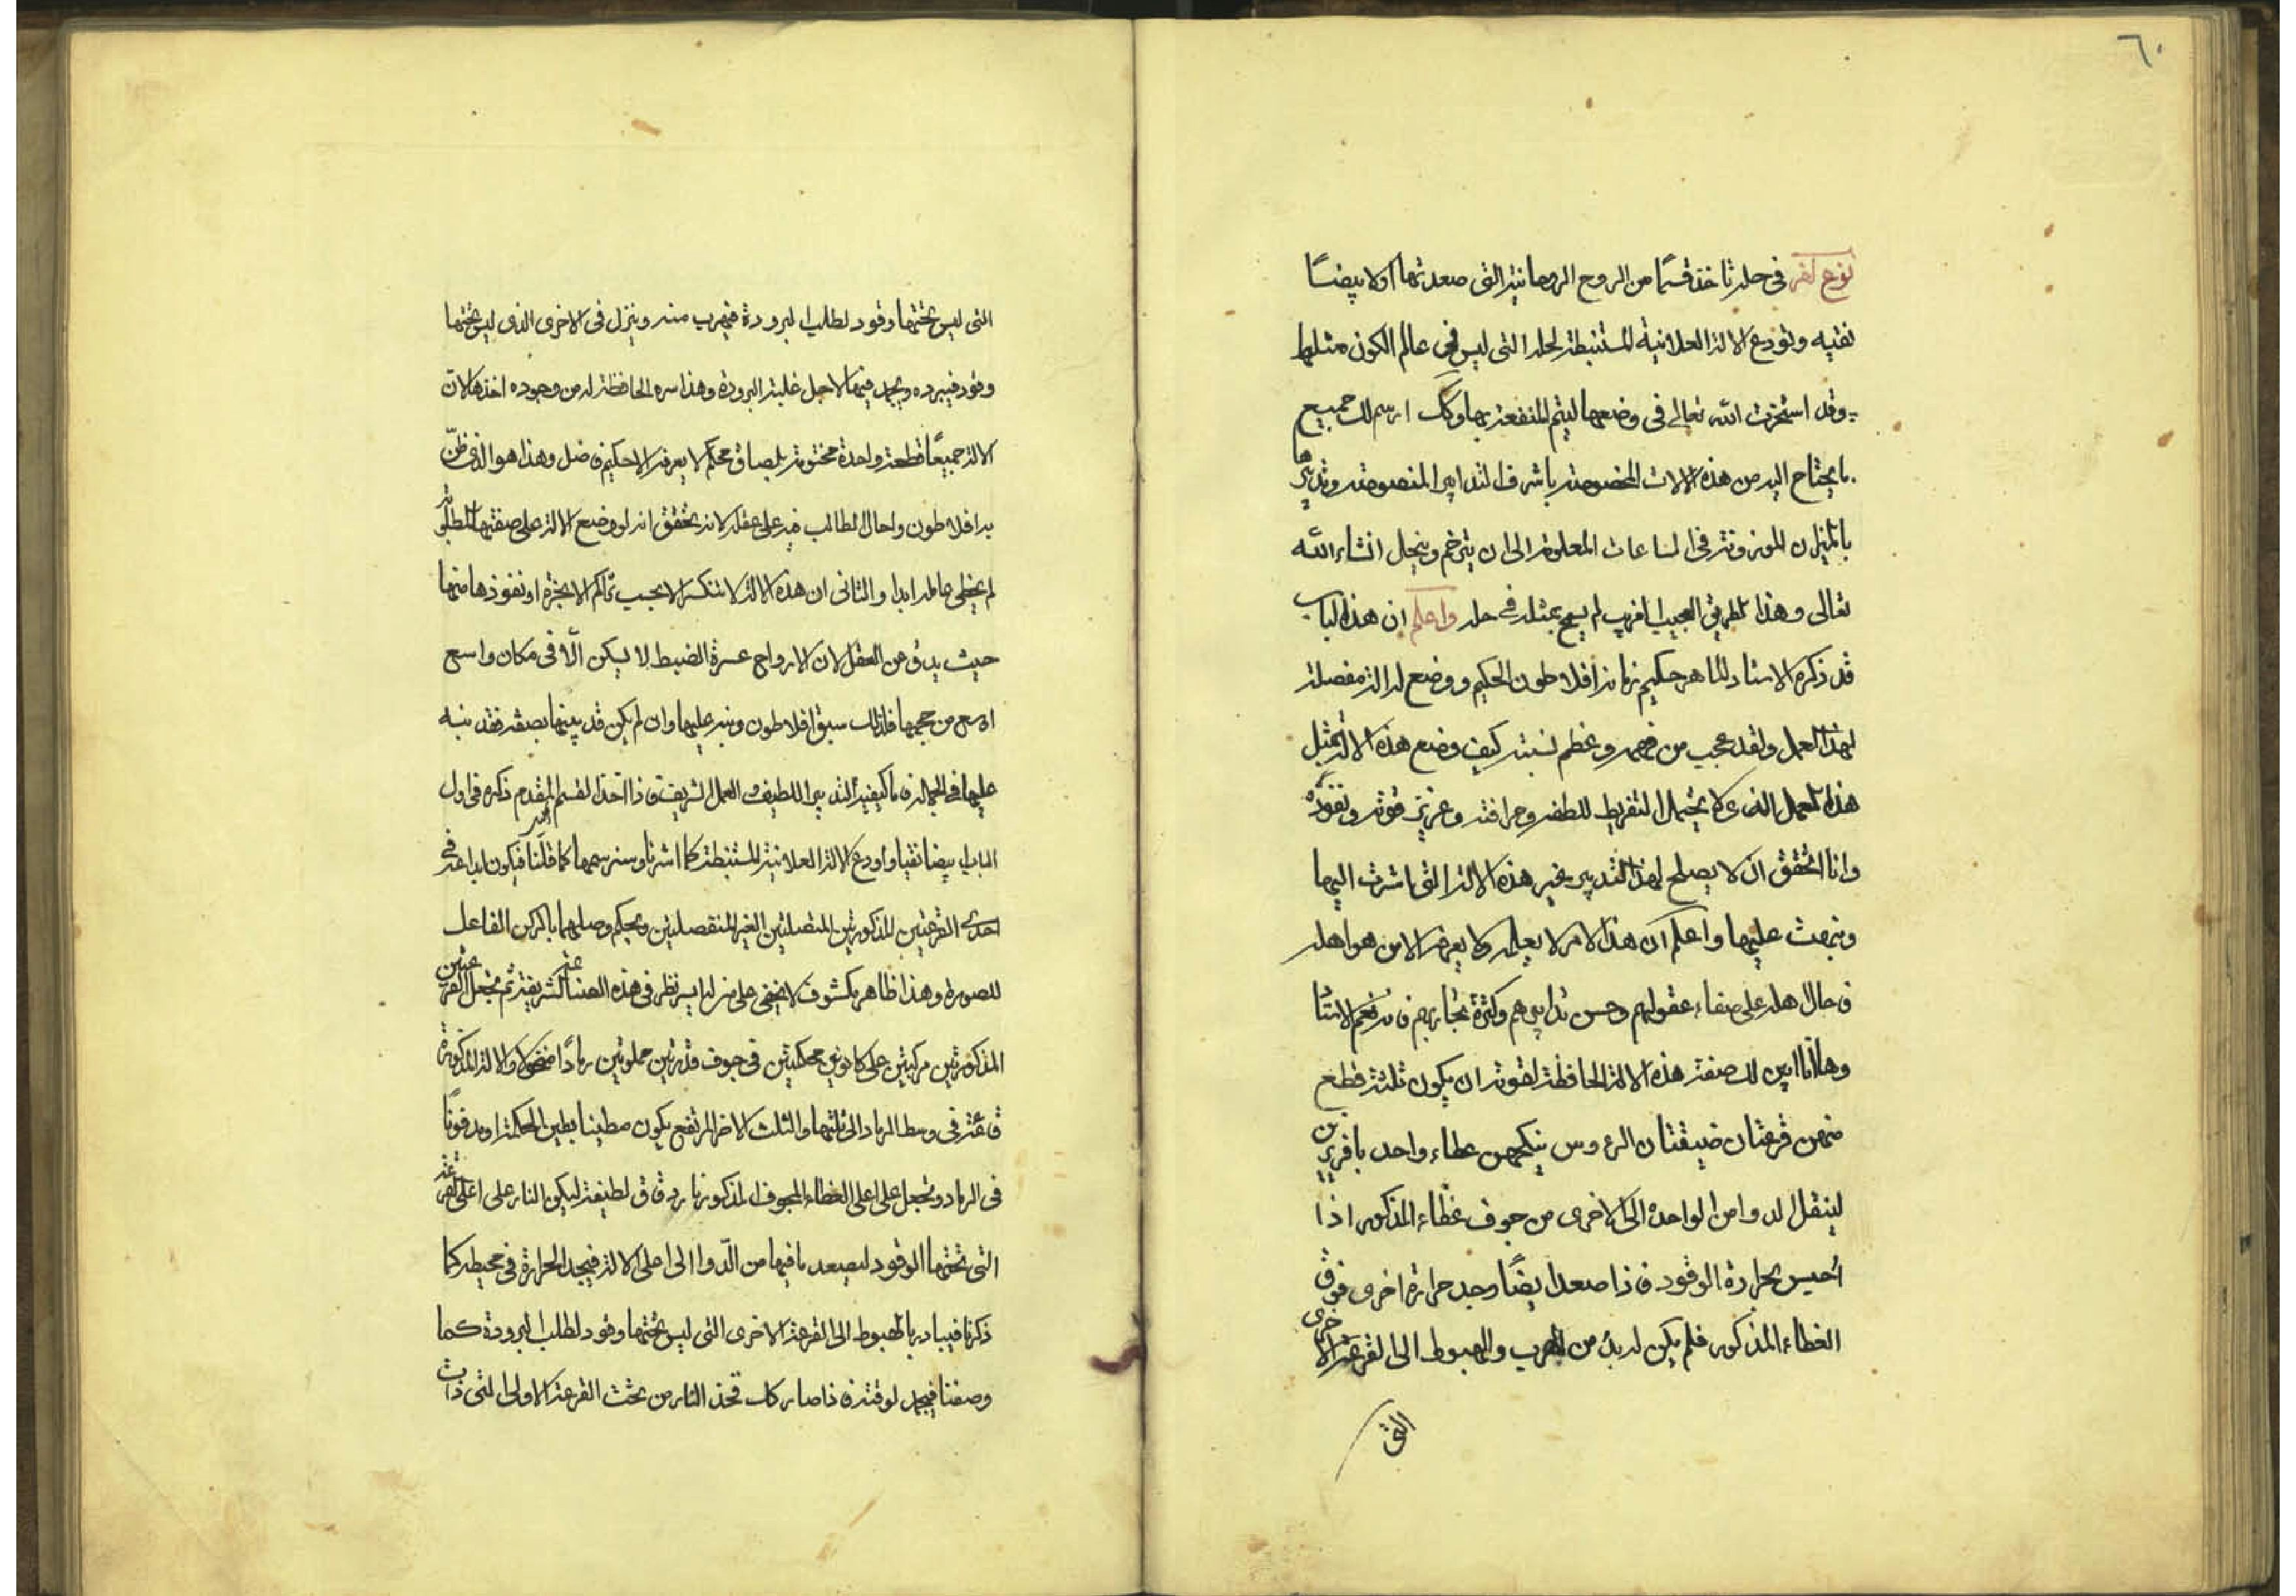 ٦٠
نوع اخر في حله تاخذ قسمًا من الروح الروحانية التى صعدتها اولا بيضًا
نقيه وتودع الالة العلانية المستنبطة لحله التى ليس في عالم الكون مثلها
وقد استخرت الله تعالى فى وضعها ليتم المنفعة بها وكك ارسم لك جميع
ما يحتاج اليه من هذه الالات المخصوصة باشرف التدابير المنصوصة وتدبيرها
بالميزان الموزونة فى الساعات المعلومة الى ان يترخم وينحل انشاء الله
تعالى وهذا الطريق العجيب الغريب لم يسمح بمثله فى حله واعلم ان هذه الباب
قد ذكره الاستاد الماهر حكيم زمانه افلاطون الحكيم ووضع له الة مفصلة
لهذا العمل ولقد عجب من فهمه وعظم نسبته كيف وضع هذه الالة لمثل
هذا العمل الذى لا يحتمل التفريط للطفه وحرافته وعزيز قوته ونفوذه
وانا اتحقق ان لا يصلح لهذا التدبير بغير هذه الالة التى اشرت اليها
ونبهت عليها واعلم ان هذا الامر لا يعلمه ولا يعرفه الا من هو اهله
فحال اهله على صفاء عقولهم وحسن تدابيرهم وكثرة تجاربهم
وها انا ابين لك صفة هذه الالة الحافظة لقوته ان يكون ثلثة قطع
منهن قرعتان ضيقتان الرءوس ينكحهن عطاء واحد
لينقل الدوا من الواحدة الى الاخرى من جوف غطاء المذكور اذا
احيس بحرارة الوقود فاذا صعد ايضًا وجد حرارة اخرى فوق
الغطاء المذكور فلم يكن له بد من الهرب والهبوط الى القرعة الاخرى
التى
التى ليس تحتها وقود لطلب البرودة فيهرب منه وينزل فى الاخرى الذى ليس تحتها
وقود فيبرده ويجمد فيها لاجل غلبة البرودة وهذا سره الحافظة له من وجوده اخذها لان
الالة جميعًا قطعة واحدة مختومة بلصاق محكم لا يعرفه الا حكيم فاضل وهذا هو الذى ظن
به افلاطون واحال الطالب فيه على عقله لانه تحقق انه لو وضع الالة على صفتها المطلوبة
لم يخطى عاملها ابدا والثانى ان هذه الالة لا تنكسر لا بحسب تراكم الابخرة او نفوذها منها
حيث يدق عن العقل لان الارواح عسرة الضبط لا يسكن الّا فى مكان واسع
اوسع من حجمها فلذلك سبق افلاطون ونبه عليها وان لم يكن قد بينها بصفة فقد نبه
عليها فى الجملة فاما كيفية التدبير اللطيف والعمل الشريف فاذا اخذ القسم المقدم ذكره فى اول
الباب بيضا نقيا واودع الالة العلانية المستنبطة كما اشرنا وسنرسمها كما قلنا فيكون ايداعه فى
احدى القرعتين المذكورتين المتصلتين الغير المنفصلتين ويحكم وصلهما
للصورة وهذا ظاهر مكشوف لا يخفى على من له ايسر نظر فى هذه الصناعة الشريفة ثم تجعل القرعتين
المذكورتين مركبتين على كانونين محكمتين فى جوف قدرتين مملوتين رمادًا منخولا والالة المذكورة
قائمة فى وسط الرماد الى ثلثيها والثلث الاخر المرتفع يكون مطينا بطين الحكمة او مدفونًا
فى الرماد وتجعل على اعلى الغطاء المجوف المذكور نار دقاق لطيفة ليكون النار على اعلى القرعة
التى تحتها الوقود ليصعد ما فيها من الدّوا الى اعلى الالة فيجد الحرارة فى محيطه كما
ذكرنا فيبادر بالهبوط الى القرعة الاخرى التى ليس تحتها وقود لطلب البرودة كما
وصفنا فيجمد لوقته فاذا صار كك فخذ النار من تحت القرعة الاولى التى ذاب